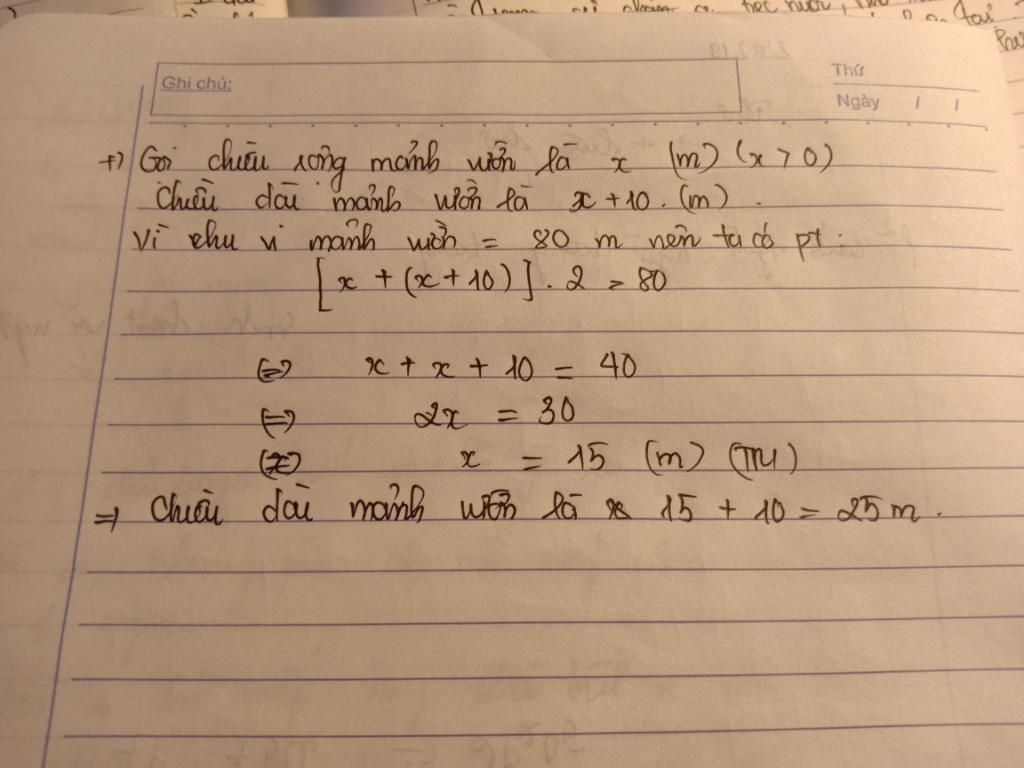 Ghi chú:
Thứ
Ngày / /
+) Gọi chiều rộng mảnh vườn là x (m) (x > 0)
Chiều dài mảnh vườn là x + 10. (m).
Vì chu vi mảnh vườn = 80 m nên ta có pt:
[x + (x + 10)] . 2 = 80
⇔ x + x + 10 = 40
⇔ 2x = 30
⇔ x = 15 (m) (TM)
⇒ Chiều dài mảnh vườn là 15 + 10 = 25 m.